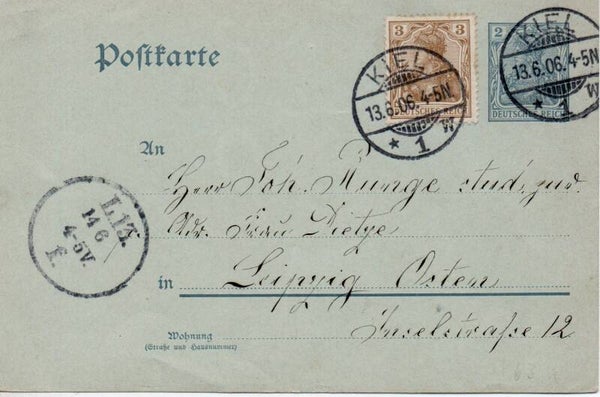 Postkarte
3
DEUTSCHES REICH
2
DEUTSCHES REICH
KIEL
13.6.06.4-5N.
* 1 w
KIEL
13.6.06.4-5N.
* 1 w
An
Herr Joh. Runge stud. jur.
Adr. Frau Dietze
in Leipzig Osten
Inselstraße 12
Wohnung
(Straße und Hausnummer)
L.13.
14 6
4-5V.
f.